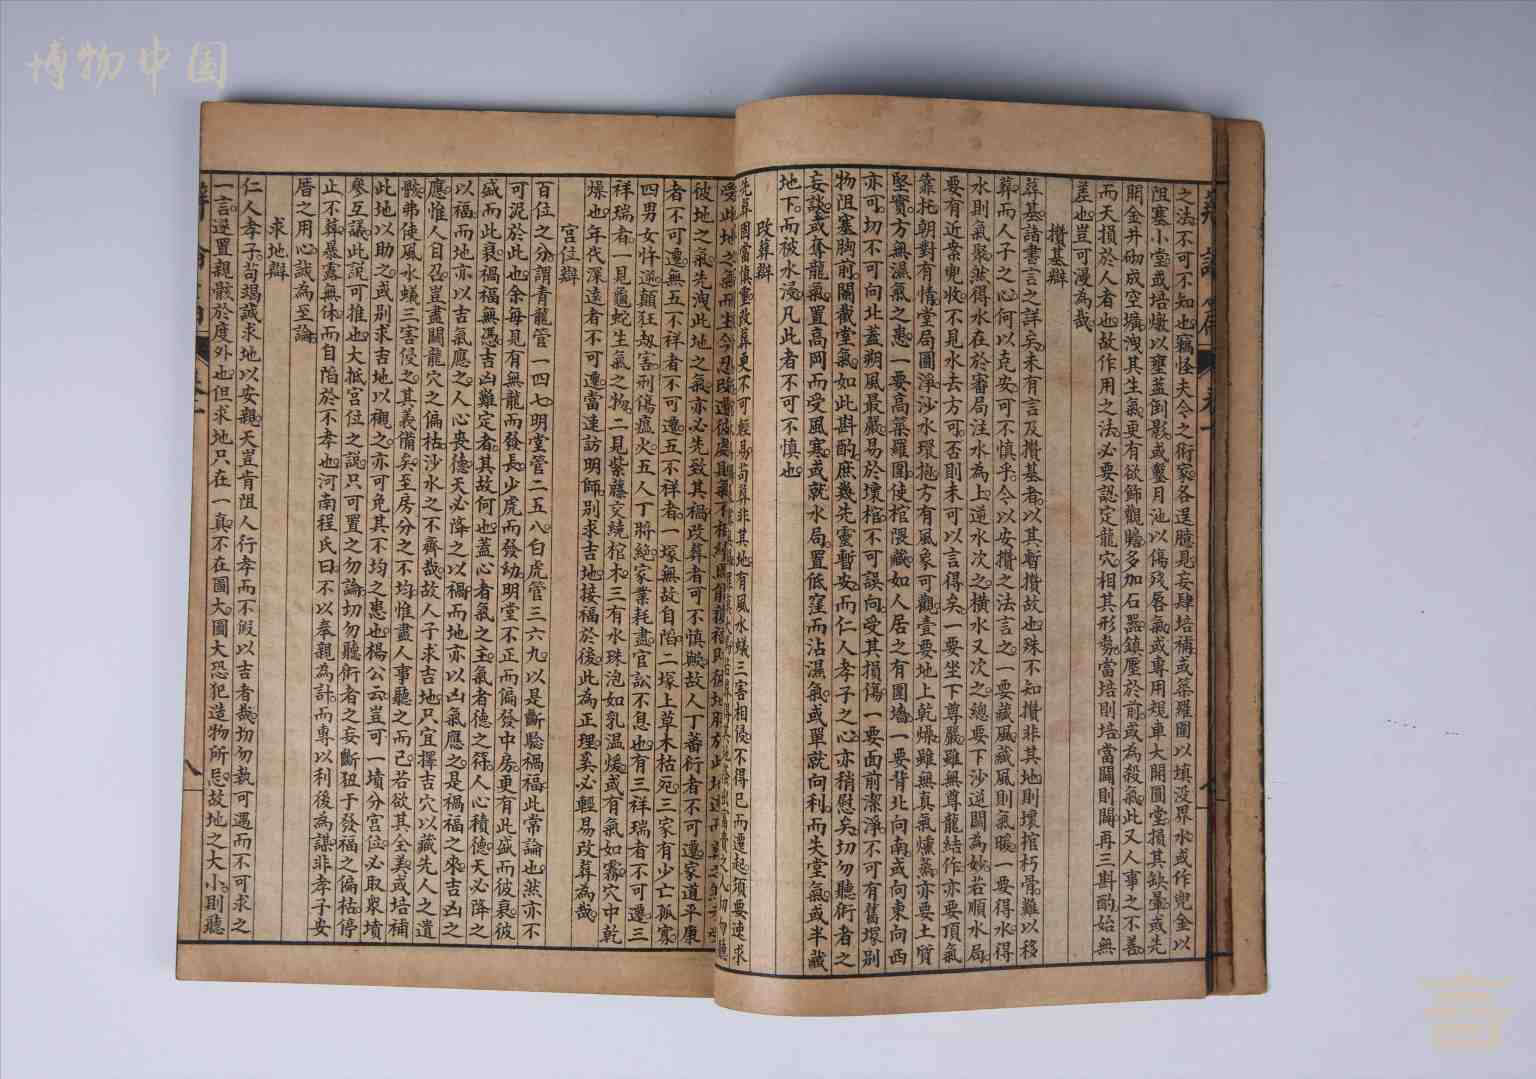 博物中国
之法不可不知也竊怪夫今之術家各逞臆見妄肆培補或築羅圍以填没界水或作兜金以
阻塞小堂或培墩以壅蓋倒影或鑿月池以傷殘唇氣或專用規車大開圓堂損其缺暈或先
開金井砌成空壙洩其生氣更有欲飾觀瞻多加石器鎮壓於前或為殺氣此又人事之不善
而天損於人者也故作用之法必要認定龍穴相其形勢當培則培當闢則闢再三斟酌始無
差也豈可漫為哉
攢基辯
葬基諸書言之詳矣未有言及攢基者以其暫攢故也殊不知攢非其地則壞棺朽骨難以移
葬而人子之心何以克安可不慎乎今以安攢之法言之一要藏風藏風則氣暖一要得水得
水則氣聚然得水在於審局注水為上逆水次之橫水又次之總要下沙逆關為妙若順水局
要有近案兜收不見水去方可否則未可以言得矣一要坐下尊嚴雖無尊龍結作亦要頂氣
靠托朝對有情堂局圓淨沙水環抱方有風象可觀壹要地上乾燥雖無真氣燻蒸亦要土質
堅實方無濕氣之患一要高築羅圍使棺隈藏如人居之有圍墻一要背北向南或向東向西
亦可切不可向北蓋朔風最嚴易於壞棺不可誤向受其損傷一要面前潔淨不可有舊塚別
物阻塞胸前關截堂氣如此斟酌庶幾先靈暫安而仁人孝子之心亦稍慰矣切勿聽術者之
妄談或奪龍氣置高岡而受風寒或就水局置低窪而沾濕氣或單就向利而失堂氣或半藏
地下而被水浸凡此者不可不慎也
改葬辯
先葬固當慎重改葬更不可輕易苟葬非其地有風水蟻三害相侵不得已而遷起須要速求
彼地之氣先洩此地之氣亦必先致其禍改葬者可不慎歟故人丁蕃衍者不可遷家道平康
者不可遷無五不祥者不可遷五不祥者一塚無故自陷二塚上草木枯死三家有少亡孤寡
四男女忤逆顛狂刼害刑傷瘟火五人丁將絕家業耗盡官訟不息也有三祥瑞者不可遷三
祥瑞者一見龜蛇生氣之物二見紫藤交繞棺木三有水珠泡如乳温煖或有氣如霧穴中乾
燥也年代深遠者不可遷當速訪明師別求吉地接福於後此為正理奚必輕易改葬為哉
宫位辯
百位之分謂青龍管一四七明堂管二五八白虎管三六九以是斷騐禍福此常論也然亦不
可泥於此也余每見有無龍而發長少虎而發幼明堂不正而偏發中房更有此盛而彼衰彼
盛而此衰禍福無憑吉凶難定者其故何也蓋心者氣之主氣者德之符人心積德天必降之
以福而地亦以吉氣應之人心喪德天必降之以禍而地亦以凶氣應之是禍福之來吉凶之
應惟人自召豈盡關龍穴之偏枯沙水之不齊哉故人子求吉地只宜擇吉穴以藏先人之遺
骸弗使風水蟻三害侵之其義備矣至房分之不均惟盡人事聽之而已若欲其全美或培補
此地以助之或別求吉地以襯之亦可免其不均之患也楊公云豈可一墳分宫位必取衆墳
參互議此説可推也大抵宫位之説只可置之勿論切勿聽術者之妄斷狃于發福之偏枯停
止不葬暴露無休而自陷於不孝也河南程氏曰不以奉親為計而專以利後為謀非孝子安
厝之用心誠為至論
求地辯
仁人孝子苟竭誠求地以安親天豈肯阻人行孝而不假以吉者哉切勿數可遇而不可求之
一言遂置親骸於度外也但求地只在一真不在圖大圖大恐犯造物所忌故地之大小則聽